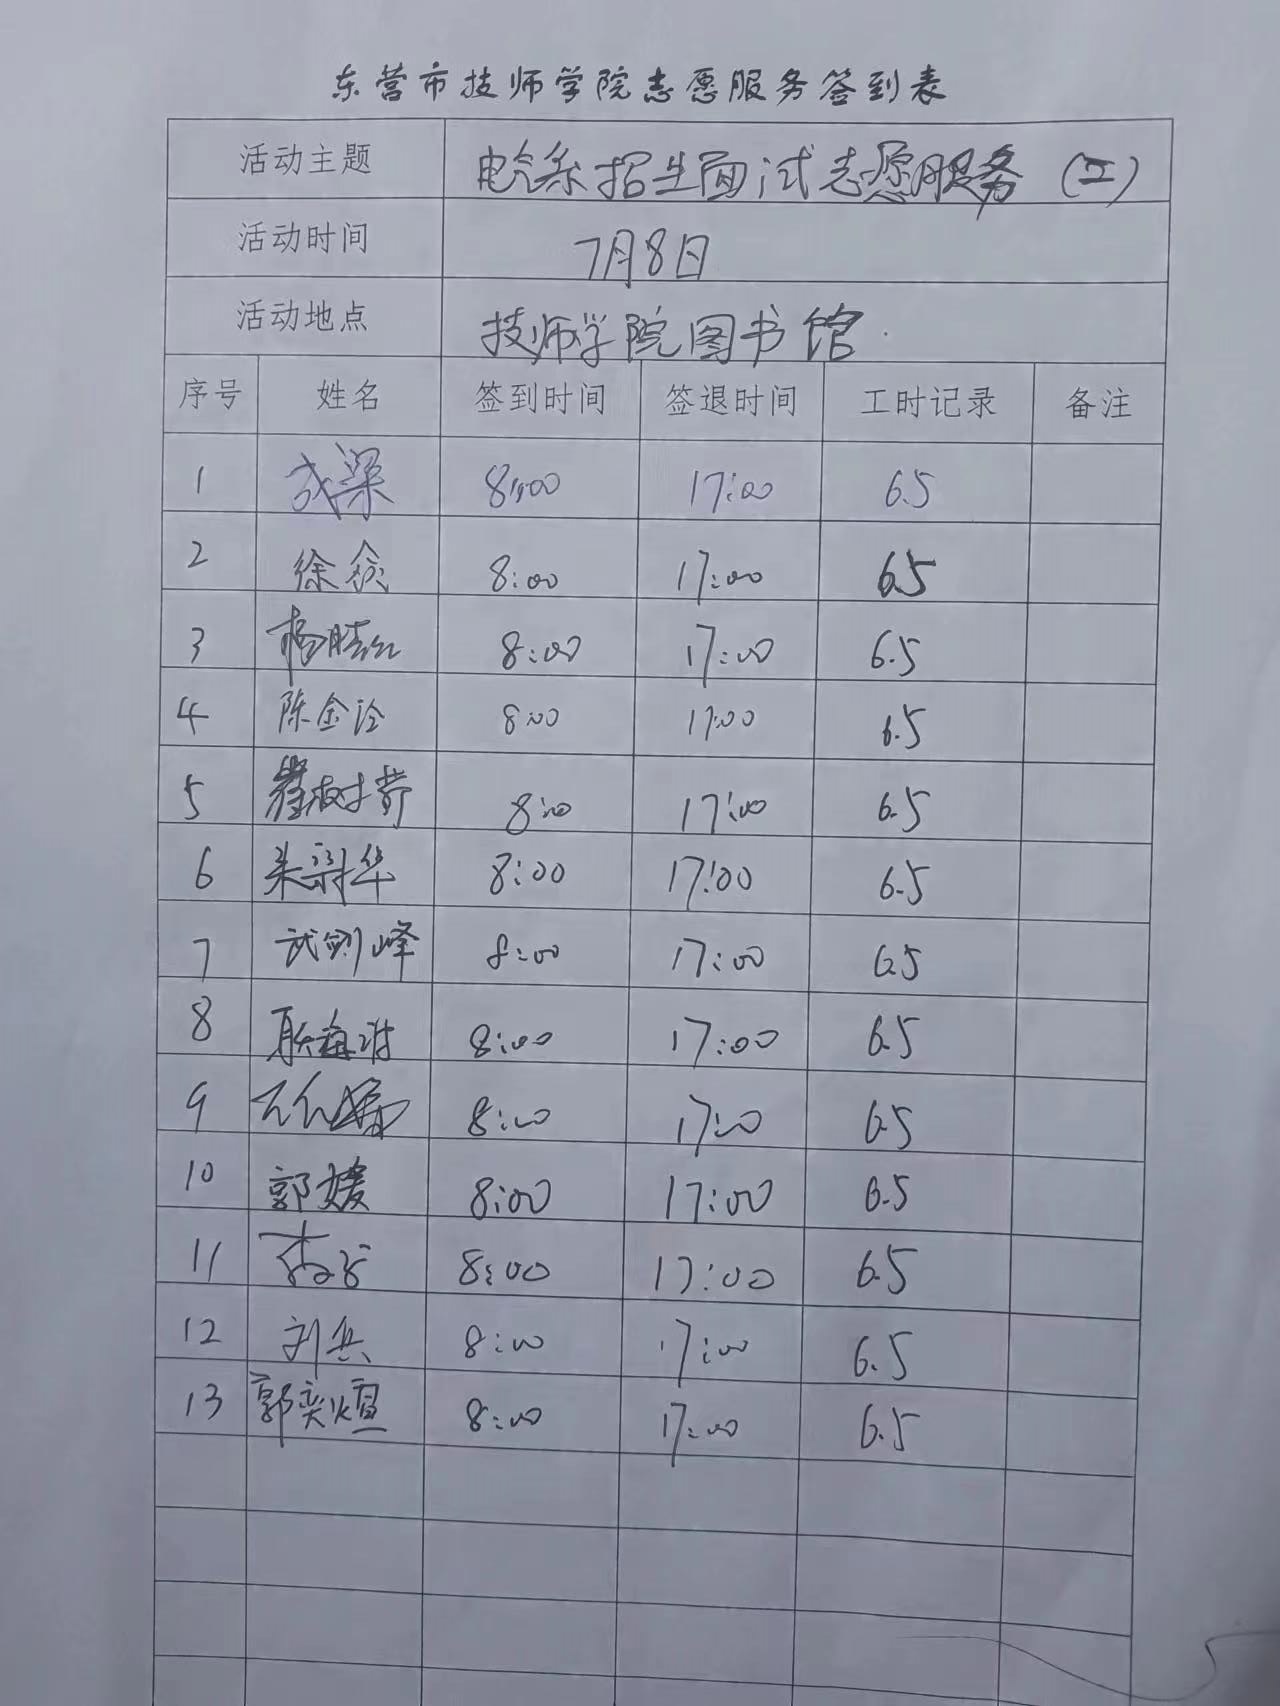 东营市技师学院志愿服务签到表
活动主题 电气系招生面试志愿服务（二）
活动时间 7月8日
活动地点 技师学院图书馆
序号 姓名 签到时间 签退时间 工时记录 备注
1 成梁 8:00 17:00 6.5
2 徐 8:00 17:00 6.5
3 杨 8:00 17:00 6.5
4 陈金 8:00 17:00 6.5
5 8:00 17:00 6.5
6 朱 华 8:00 17:00 6.5
7 武剑峰 8:00 17:00 6.5
8 耿海 8:00 17:00 6.5
9 8:00 17:00 6.5
10 郭媛 8:00 17:00 6.5
11 8:00 17:00 6.5
12 刘兵 8:00 17:00 6.5
13 郭奕煊 8:00 17:00 6.5